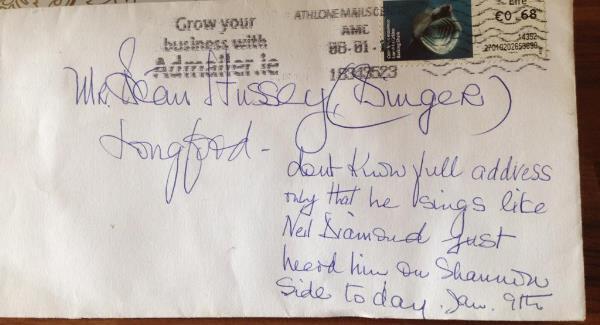 Grow your
business with
Admailer.ie
ATHLONE MAILS CE
AMC
08-01-
18343523
Éire
€0.68
14352
Mr. Sean Hussey, (Singer)
Longford -
dont know full address
only that he sings like
Neil Diamond just
heard him on Shannon
Side today. Jan. 9th